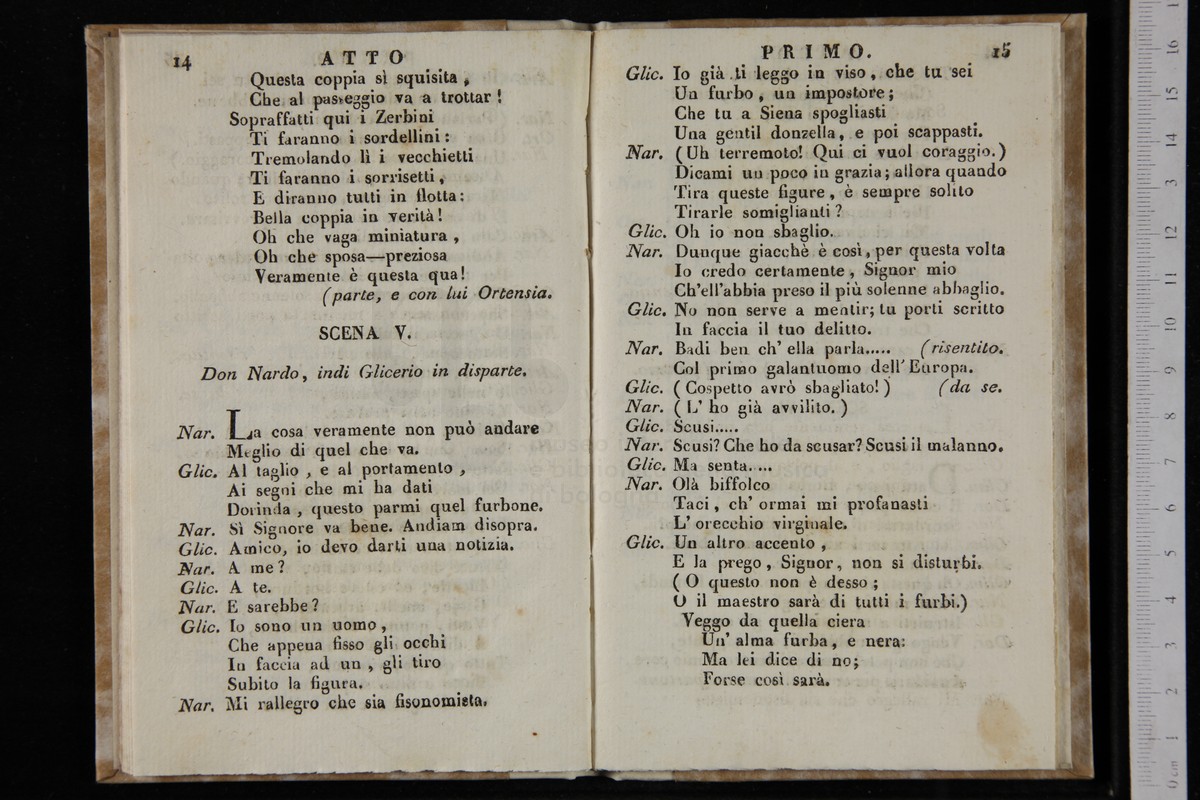 14 ATTO
Questa coppia sì squisita,
Che al passeggio va a trottar!
Sopraffatti qui i Zerbini
Ti faranno i sordellini:
Tremolando lì i vecchietti
Ti faranno i sorrisetti,
E diranno tutti in flotta:
Bella coppia in verità!
Oh che vaga miniatura,
Oh che sposa—preziosa
Veramente è questa qua!
(parte, e con lui Ortensia.
SCENA V.
Don Nardo, indi Glicerio in disparte.
Nar. La cosa veramente non può andare
Meglio di quel che va.
Glic. Al taglio, e al portamento,
Ai segni che mi ha dati
Dorinda, questo parmi quel furbone.
Nar. Sì Signore va bene. Andiam disopra.
Glic. Amico, io devo darti una notizia.
Nar. A me?
Glic. A te.
Nar. E sarebbe?
Glic. Io sono un uomo,
Che appena fisso gli occhi
In faccia ad un, gli tiro
Subito la figura.
Nar. Mi rallegro che sia fisonomista.
PRIMO. 15
Glic. Io già ti leggo in viso, che tu sei
Un furbo, un impostore;
Che tu a Siena spogliasti
Una gentil donzella, e poi scappasti.
Nar. (Uh terremoto! Qui ci vuol coraggio.)
Dicami un poco in grazia; allora quando
Tira queste figure, è sempre solito
Tirarle somiglianti?
Glic. Oh io non sbaglio.
Nar. Dunque giacchè è così, per questa volta
Io credo certamente, Signor mio
Ch'ell'abbia preso il più solenne abbaglio.
Glic. No non serve a mentir; tu porti scritto
In faccia il tuo delitto.
Nar. Badi ben ch' ella parla..... (risentito.
Col primo galantuomo dell' Europa.
Glic. (Cospetto avrò sbagliato!) (da se.
Nar. (L' ho già avvilito.)
Glic. Scusi.....
Nar. Scusi? Che ho da scusar? Scusi il malanno.
Glic. Ma senta.....
Nar. Olà biffolco
Taci, ch' ormai mi profanasti
L' orecchio virginale.
Glic. Un altro accento,
E la prego, Signor, non si disturbi.
(O questo non è desso;
O il maestro sarà di tutti i furbi.)
Veggo da quella ciera
Un' alma furba, e nera:
Ma lei dice di no;
Forse così sarà.